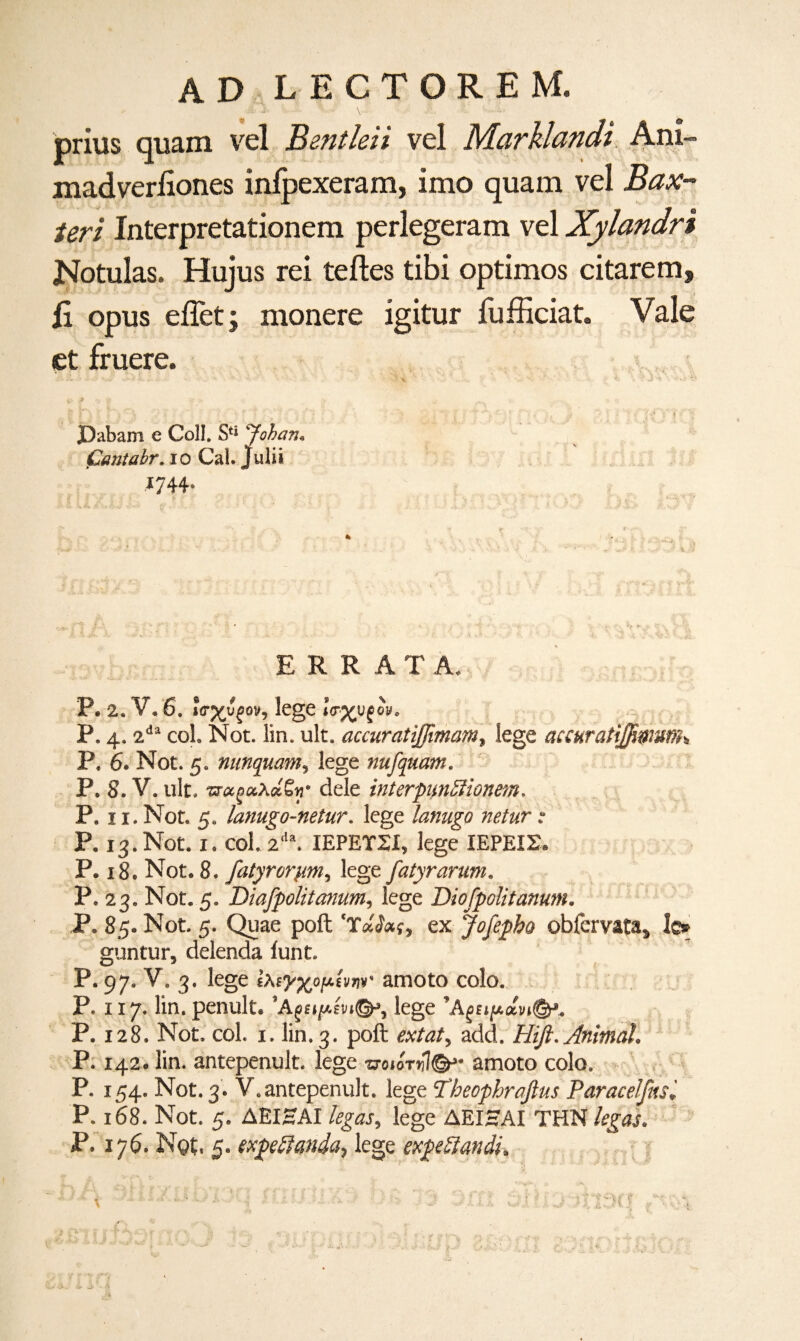 AD LECTOREM.
prius quam vel Bentleii vel Marklandi Ani-
madverſiones inſpexeram, imo quam vel Bax-
teri Interpretationem perlegeram vel Xylandri
Notulas. Hujus rei teſtes tibi optimos citarem,
ſi opus eſſet; monere igitur ſufficiat. Vale
et fruere.
Dabam e Coll. Sti Johan.
Cantabr. 10 Cal. Julii
1744.
ERRATA.
P. 2. V. 6. ἰσχύρον, lege ἰσχυρὸν.
P. 4. 2da col. Not. lin. ult. accuratiſſimam, lege accuratiſſimum.
P. 6. Not. 5. nunquam, lege nuſquam.
P. 8. V. ult. ϖαραλάϐῃ· dele interpunctionem.
P. 11. Not. 5. lanugo-netur. lege lanugo netur :
P. 13. Not. 1. col. 2da. ΙΕΡΕΤΣΙ, lege ΙΕΡΕΙΣ.
P. 18. Not. 8. ſatyrorum, lege ſatyrarum.
P. 23. Not. 5. Diaſpolitanum, lege Dioſpolitanum.
P. 85. Not. 5. Quae poſt Ὑάδας, ex Joſepho obſervata, le-
guntur, delenda ſunt.
P. 97. V. 3. lege ἐλεγχομένην· amoto colo.
P. 117. lin. penult. Ἀρειμένι@, lege Ἀρειμάνι@.
P. 128. Not. col. 1. lin. 3. poſt extat, add. Hiſt. Animal.
P. 142. lin. antepenult. lege ϖοιότηϊ@· amoto colo.
P. 154. Not. 3. V. antepenult. lege Theophraſtus Paracelſus.
P. 168. Not. 5. ΔΕΙΞΑΙ legas, lege ΔΕΙΞΑΙ ΤΗΝ legas.
P. 176. Not. 5. expectanda, lege expectandi.